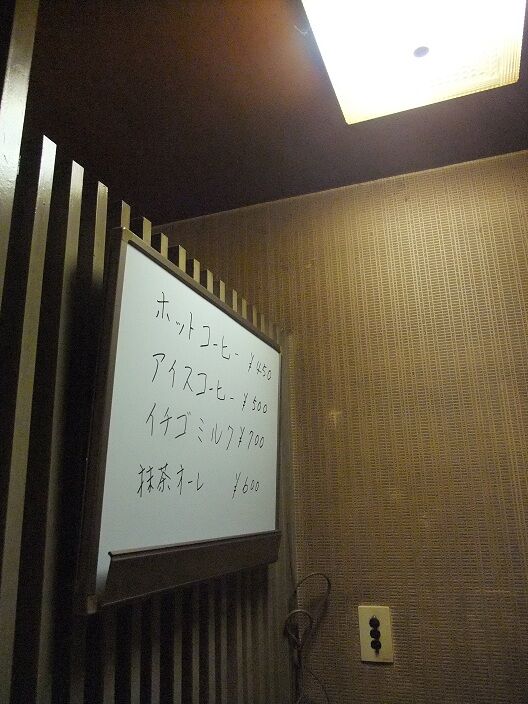 ホットコーヒー ¥450
アイスコーヒー ¥500
イチゴミルク ¥700
抹茶オーレ ¥600